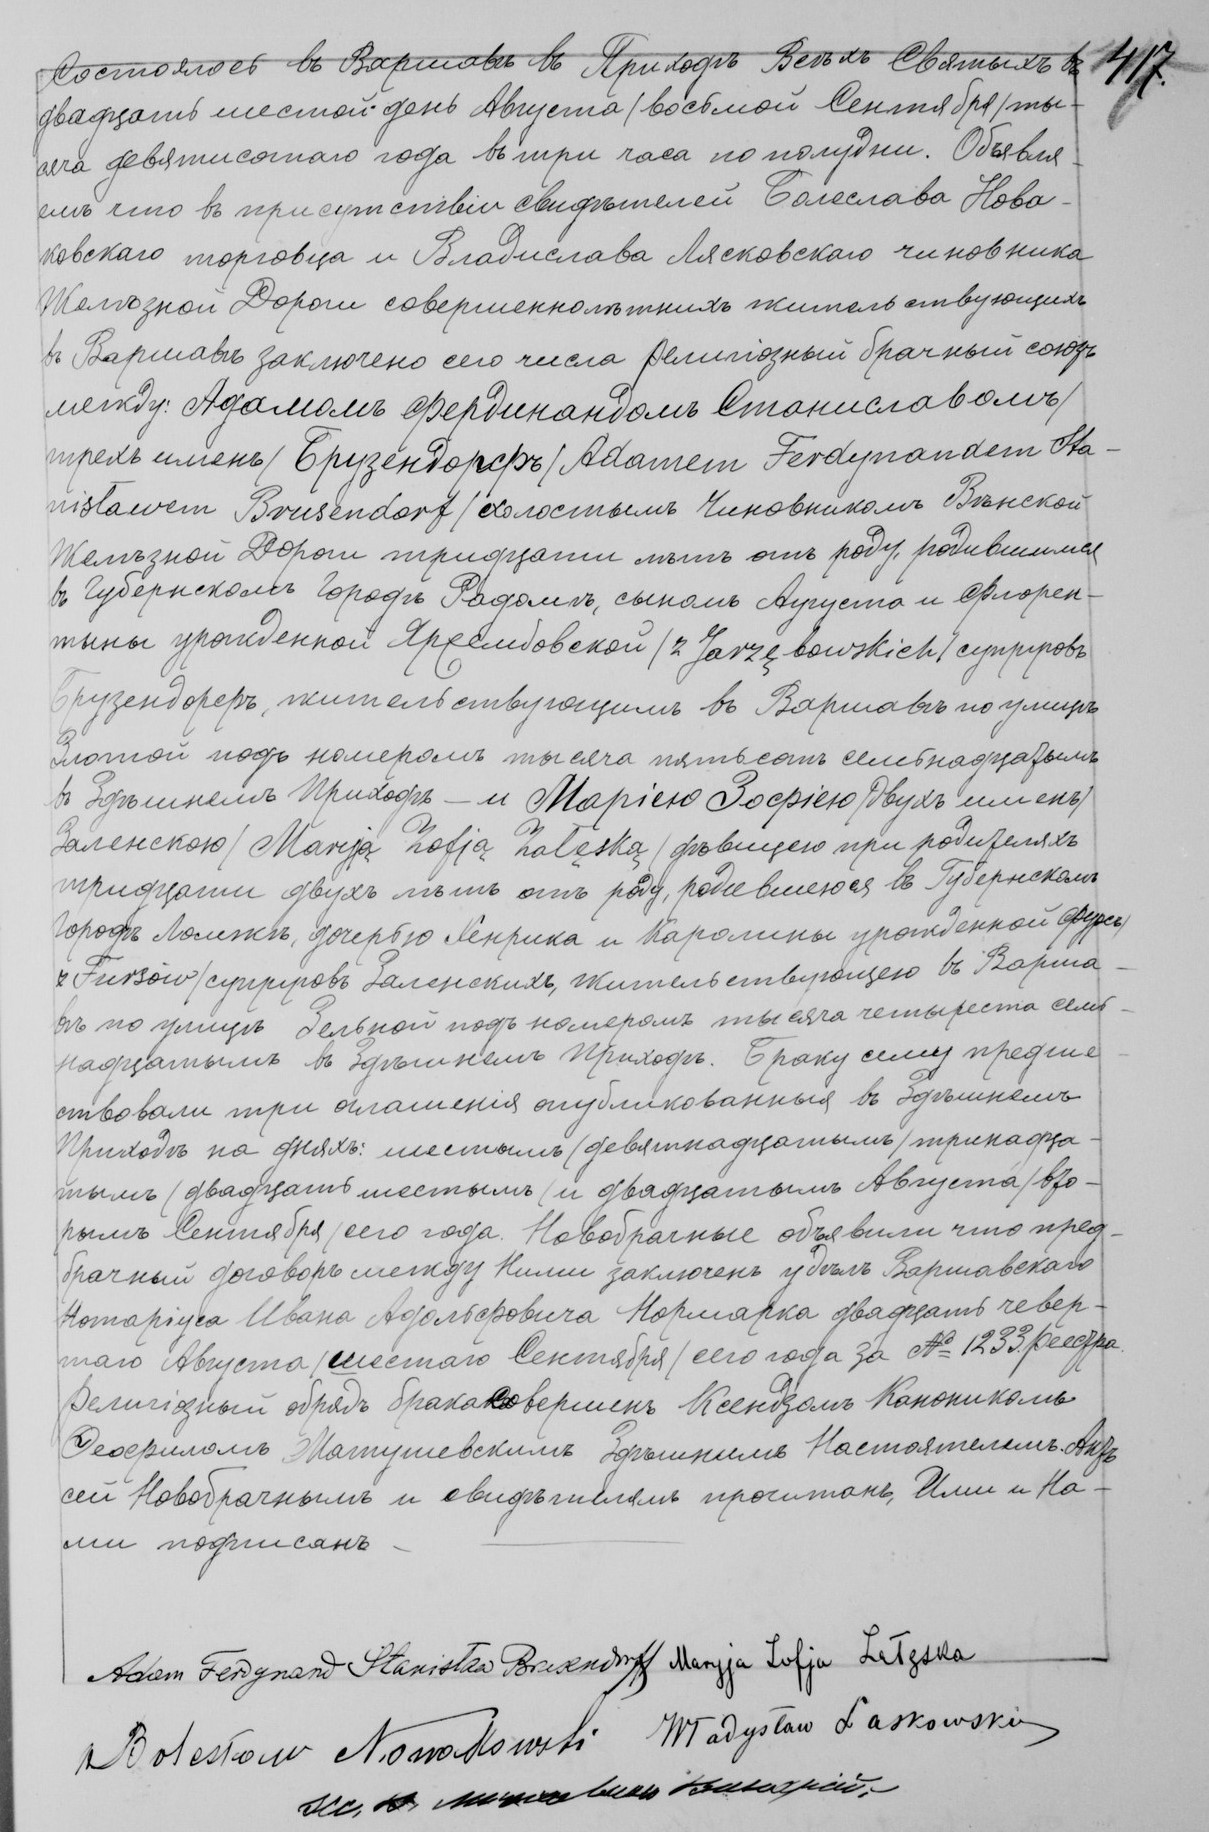 417.
Состоялось въ Варшавѣ въ Приходѣ Всѣхъ Святыхъ въ
двадцать шестой день Августа /восьмой Сентября/ ты-
сяча девятисотаго года въ три часа по полудни. Объявля-
емъ что въ присутствіи свидѣтелей Болеслава Нова-
ковскаго торговца и Владислава Лясковскаго чиновника
Желѣзной Дороги совершеннолѣтнихъ жительствующихъ
въ Варшавѣ заключено сего числа религіозный брачный союзъ
между: Адамомъ Фердинандомъ Станиславомъ/
трехъ именъ/ Брузендорфъ /Adamem Ferdynandem Sta-
nisławem Brusendorf/ холостымъ Чиновникомъ Вѣнской
Желѣзной Дороги тридцати лѣтъ отъ роду, родившимся
въ Губернскомъ Городѣ Радомѣ, сыномъ Августа и Флорен-
тыны урожденной Яржембовской /z Jarzębowskich/ супруговъ
Брузендорфъ, жительствующимъ въ Варшавѣ по улицѣ
Злотой подъ номеромъ тысяча пятьсотъ семьнадцатымъ
въ Здѣшнемъ Приходѣ — и Маріею Зофіею /двухъ именъ/
Заленскою /Maryją Zofją Załęską/ дѣвицею при родителяхъ
тридцати двухъ лѣтъ отъ роду, родившеюся въ Губернскомъ
Городѣ Ломжѣ, дочерью Генрика и Каролины урожденной Фурсъ/
z Fursów/ супруговъ Заленскихъ, жительствующею въ Варша-
вѣ по улицѣ Зельной подъ номеромъ тысяча четыреста семь-
надцатымъ въ Здѣшнемъ Приходѣ. Браку сему предше-
ствовали три оглашенія опубликованныя въ Здѣшнемъ
Приходѣ на дняхъ: шестымъ /девятнадцатымъ/ тринадца-
тымъ /двадцать шестымъ/ и двадцатымъ Августа /вто-
рымъ Сентября/ сего года. Новобрачные объявили что пред-
брачный договоръ между Ними заключенъ у Варшавскаго
Нотаріуса Ивана Адольфовича Нормарка двадцать чевер-
таго Августа /шестаго Сентября/ сего года за № 1233 реестра.
Религіозный обрядъ брака совершенъ Ксендзомъ Каноникомъ
Теофиломъ Матушевскимъ Здѣшнимъ Настоятелемъ. Актъ
сей Новобрачнымъ и свидѣтелямъ прочитанъ, Ими и На-
ми подписанъ —
Adam Ferdynand Stanisław Brusendorff Maryja Zofja Załęska
Bolesław Nowakowski Władysław Laskowski
Кс.